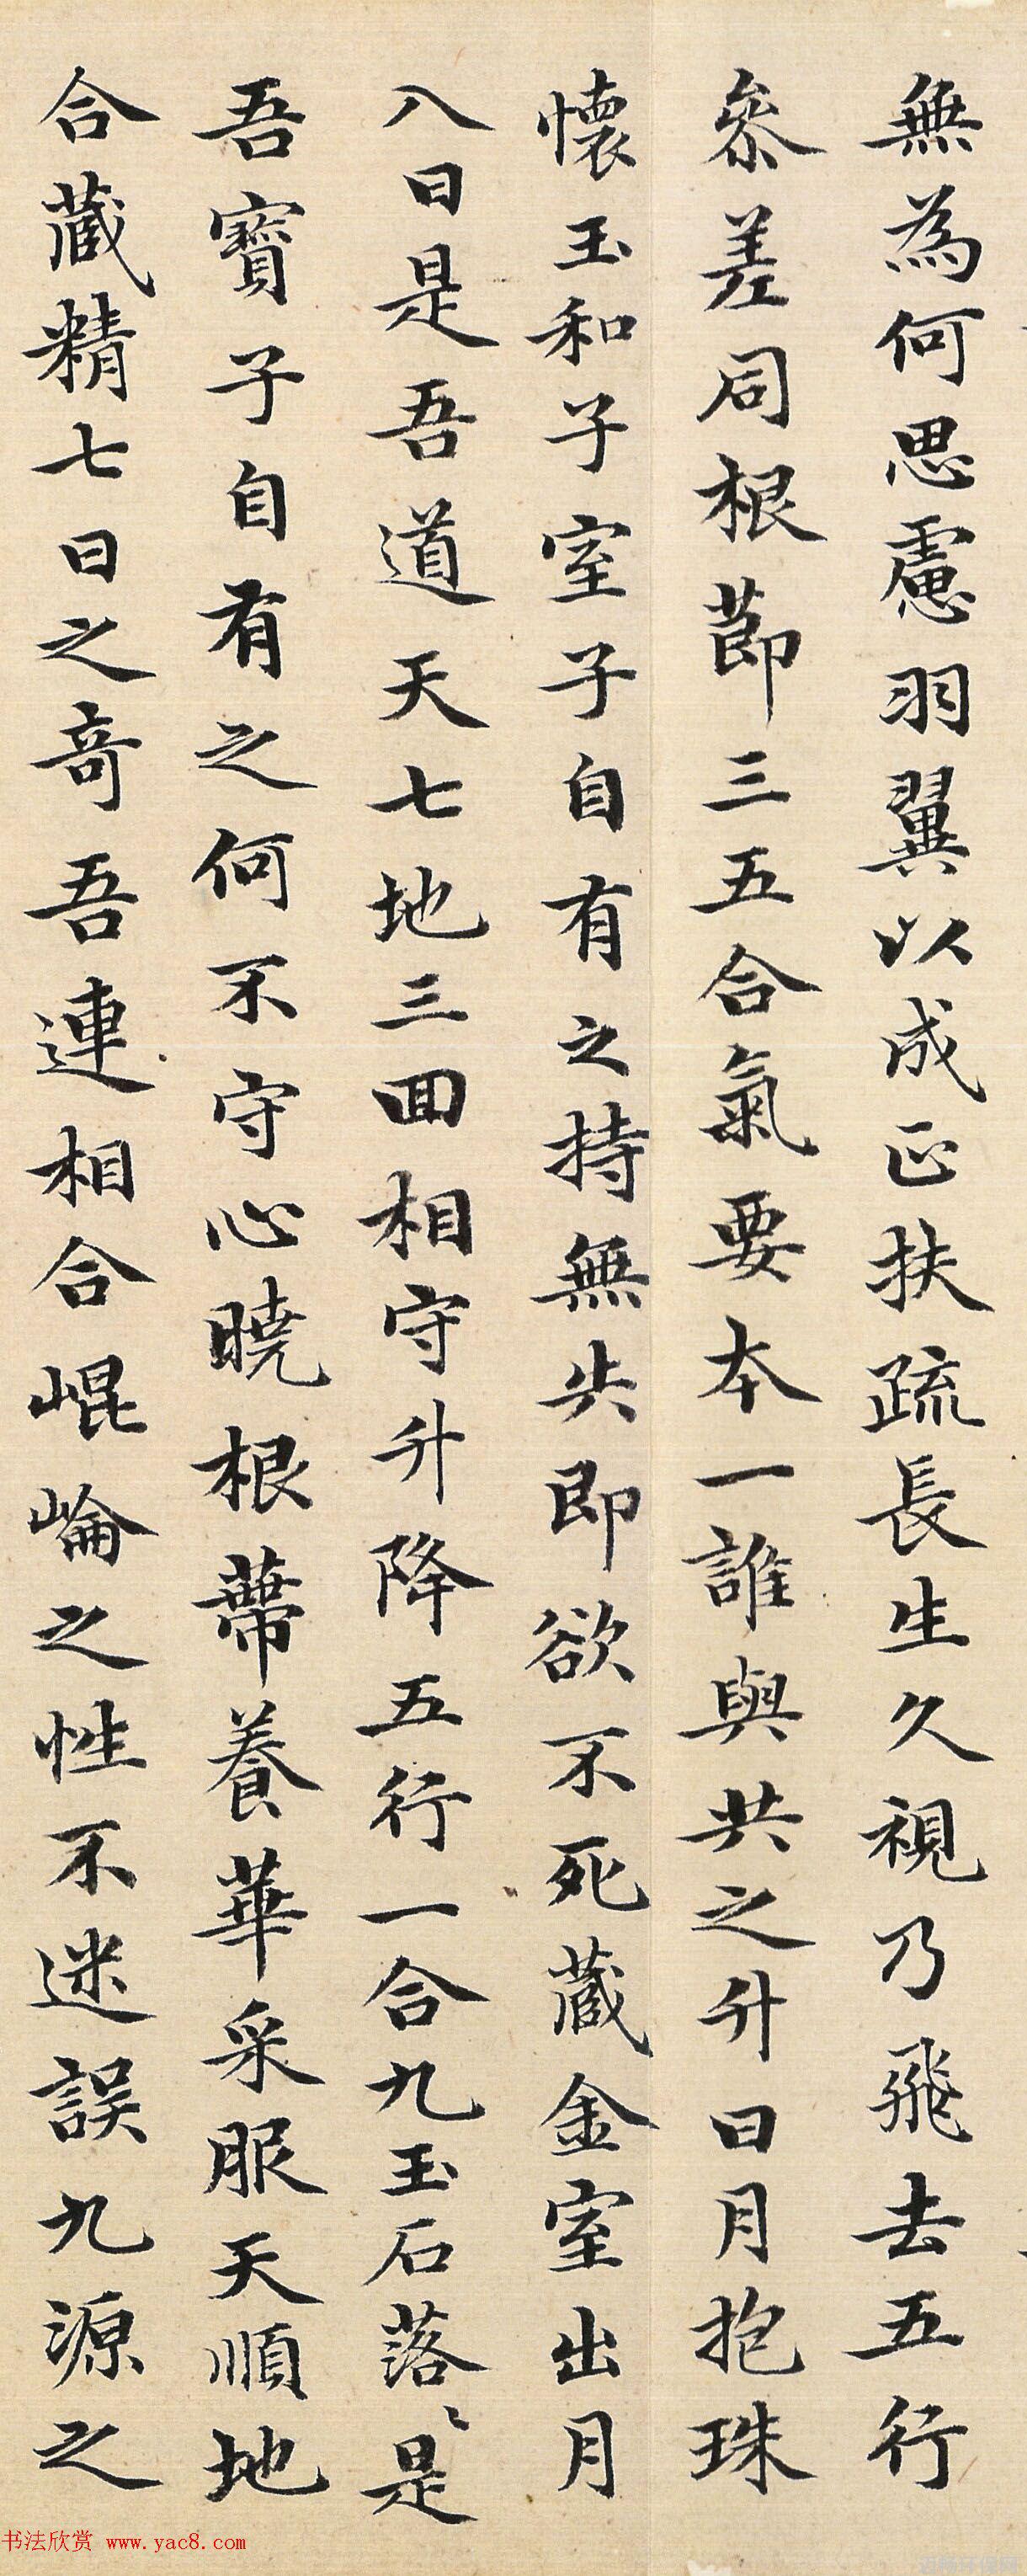 無為何思慮羽翼以成正扶疏長生久視乃飛去五行
參差同根莭三五合氣要本一誰與共之升日月抱珠
懷玉和子室子自有之持無失即欲不死藏金室出月
入日是吾道天七地三回相守升降五行一合九玉石落〻是
吾寶子自有之何不守心曉根蔕養華采服天順地
合藏精七日之奇吾連相合崐崘之性不迷誤九源之
书法欣赏 www.yac8.com